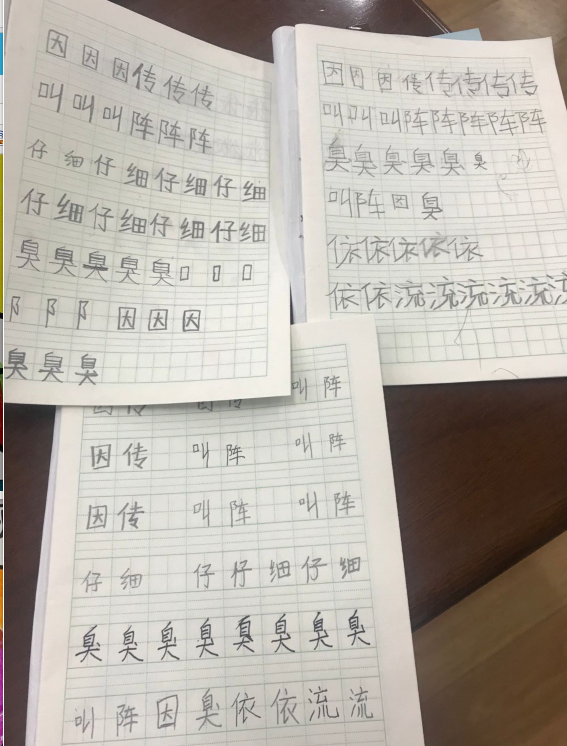 因因因传传传
叫叫叫阵阵阵
仔细仔细仔细仔细
仔细仔细仔细仔细
臭臭臭臭臭口口口
阝阝阝因因因
臭臭臭
因因因传传传传传
叫叫叫阵阵阵阵阵
臭臭臭臭臭臭
叫阵因臭
依依依依依
依依流流流流流流
因传 因传 叫阵
因传 叫阵 叫阵
因传 叫阵 叫阵
仔细 仔仔细仔细
臭臭臭臭臭臭臭臭
叫阵因臭依依流流